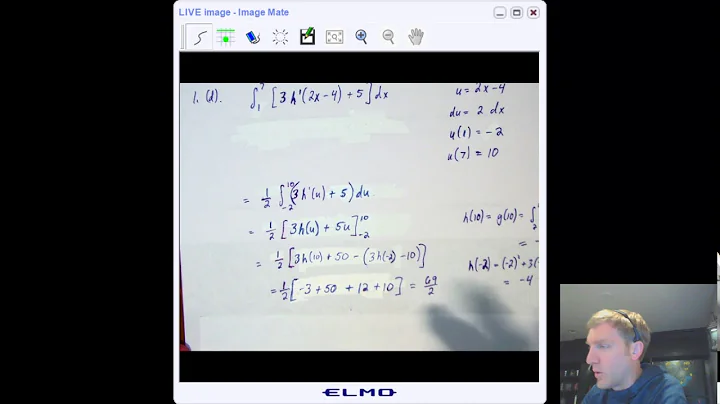 LIVE image - Image Mate
1. (d). ∫₁⁷ [3h'(2x-4)+5]dx
u = 2x-4
du = 2 dx
u(1) = -2
u(7) = 10
= 1/2 ∫₋₂¹⁰ (3h'(u) + 5) du
= 1/2 [3h(u) + 5u]₋₂¹⁰
= 1/2 [3h(10) + 50 - (3h(-2) - 10)]
= 1/2 [-3 + 50 + 12 + 10] = 69/2
h(10) = g(10) = ∫₂
= -
h(-2) = (-2)² + 3(-
= -4
ELMO